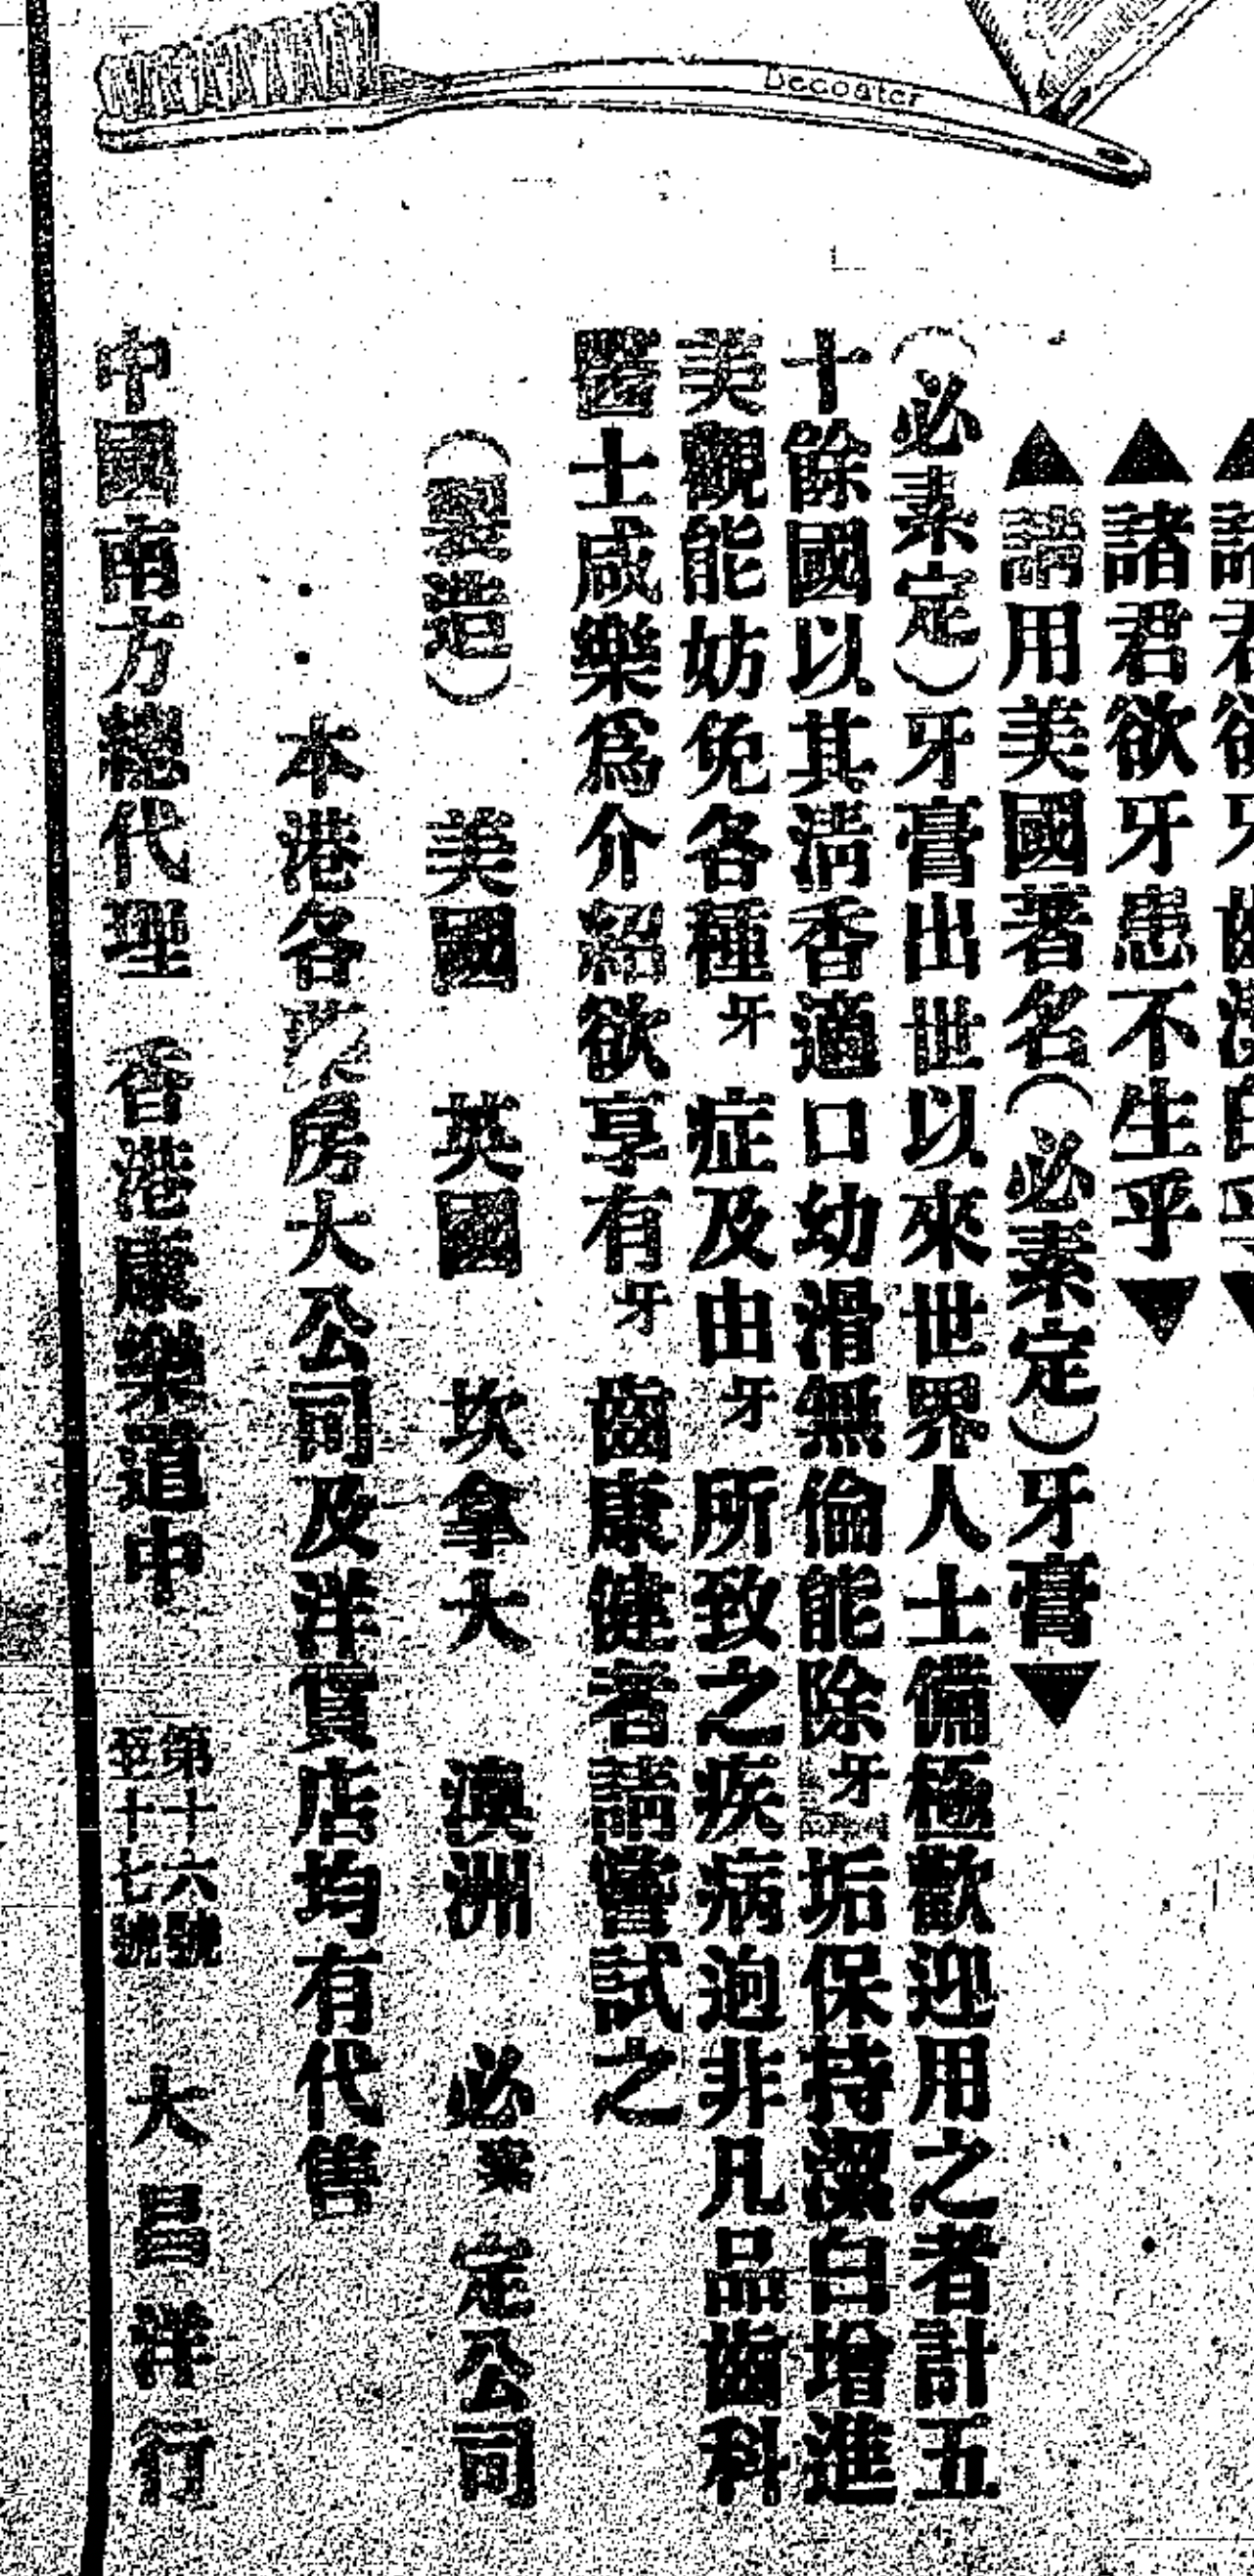 Decoater
諸君欲牙齒潔白乎
▲諸君欲牙患不生乎▼
▲請用美國著名(必素定)牙膏▼
(必素定)牙膏出世以來世界人士備極歡迎用之者計五
十餘國以其清香適口幼滑無倫能除牙垢保持潔白增進
美觀能妨免各種牙症及由牙所致之疾病逈非凡品齒科
醫士咸樂爲介紹欲享有牙齒康健者請嘗試之
(製造) 美國 英國 坎拿大 澳洲 必素定公司
本港各藥房大公司及洋貨店均有代售
中國南方總代理 香港康樂道中 第十六號 至十七號 大昌洋行